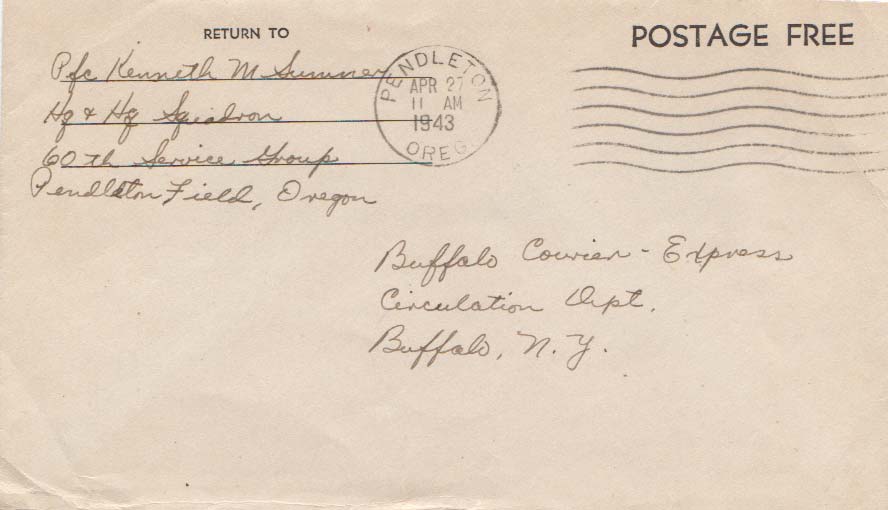 RETURN TO
POSTAGE FREE
Pfc Kenneth M Sumner
Hq & Hq Squadron
60th Service Group
Pendleton Field, Oregon
PENDLETON
APR 27
11 AM
1943
OREG
Buffalo Courier-Express
Circulation Dept.
Buffalo, N.Y.